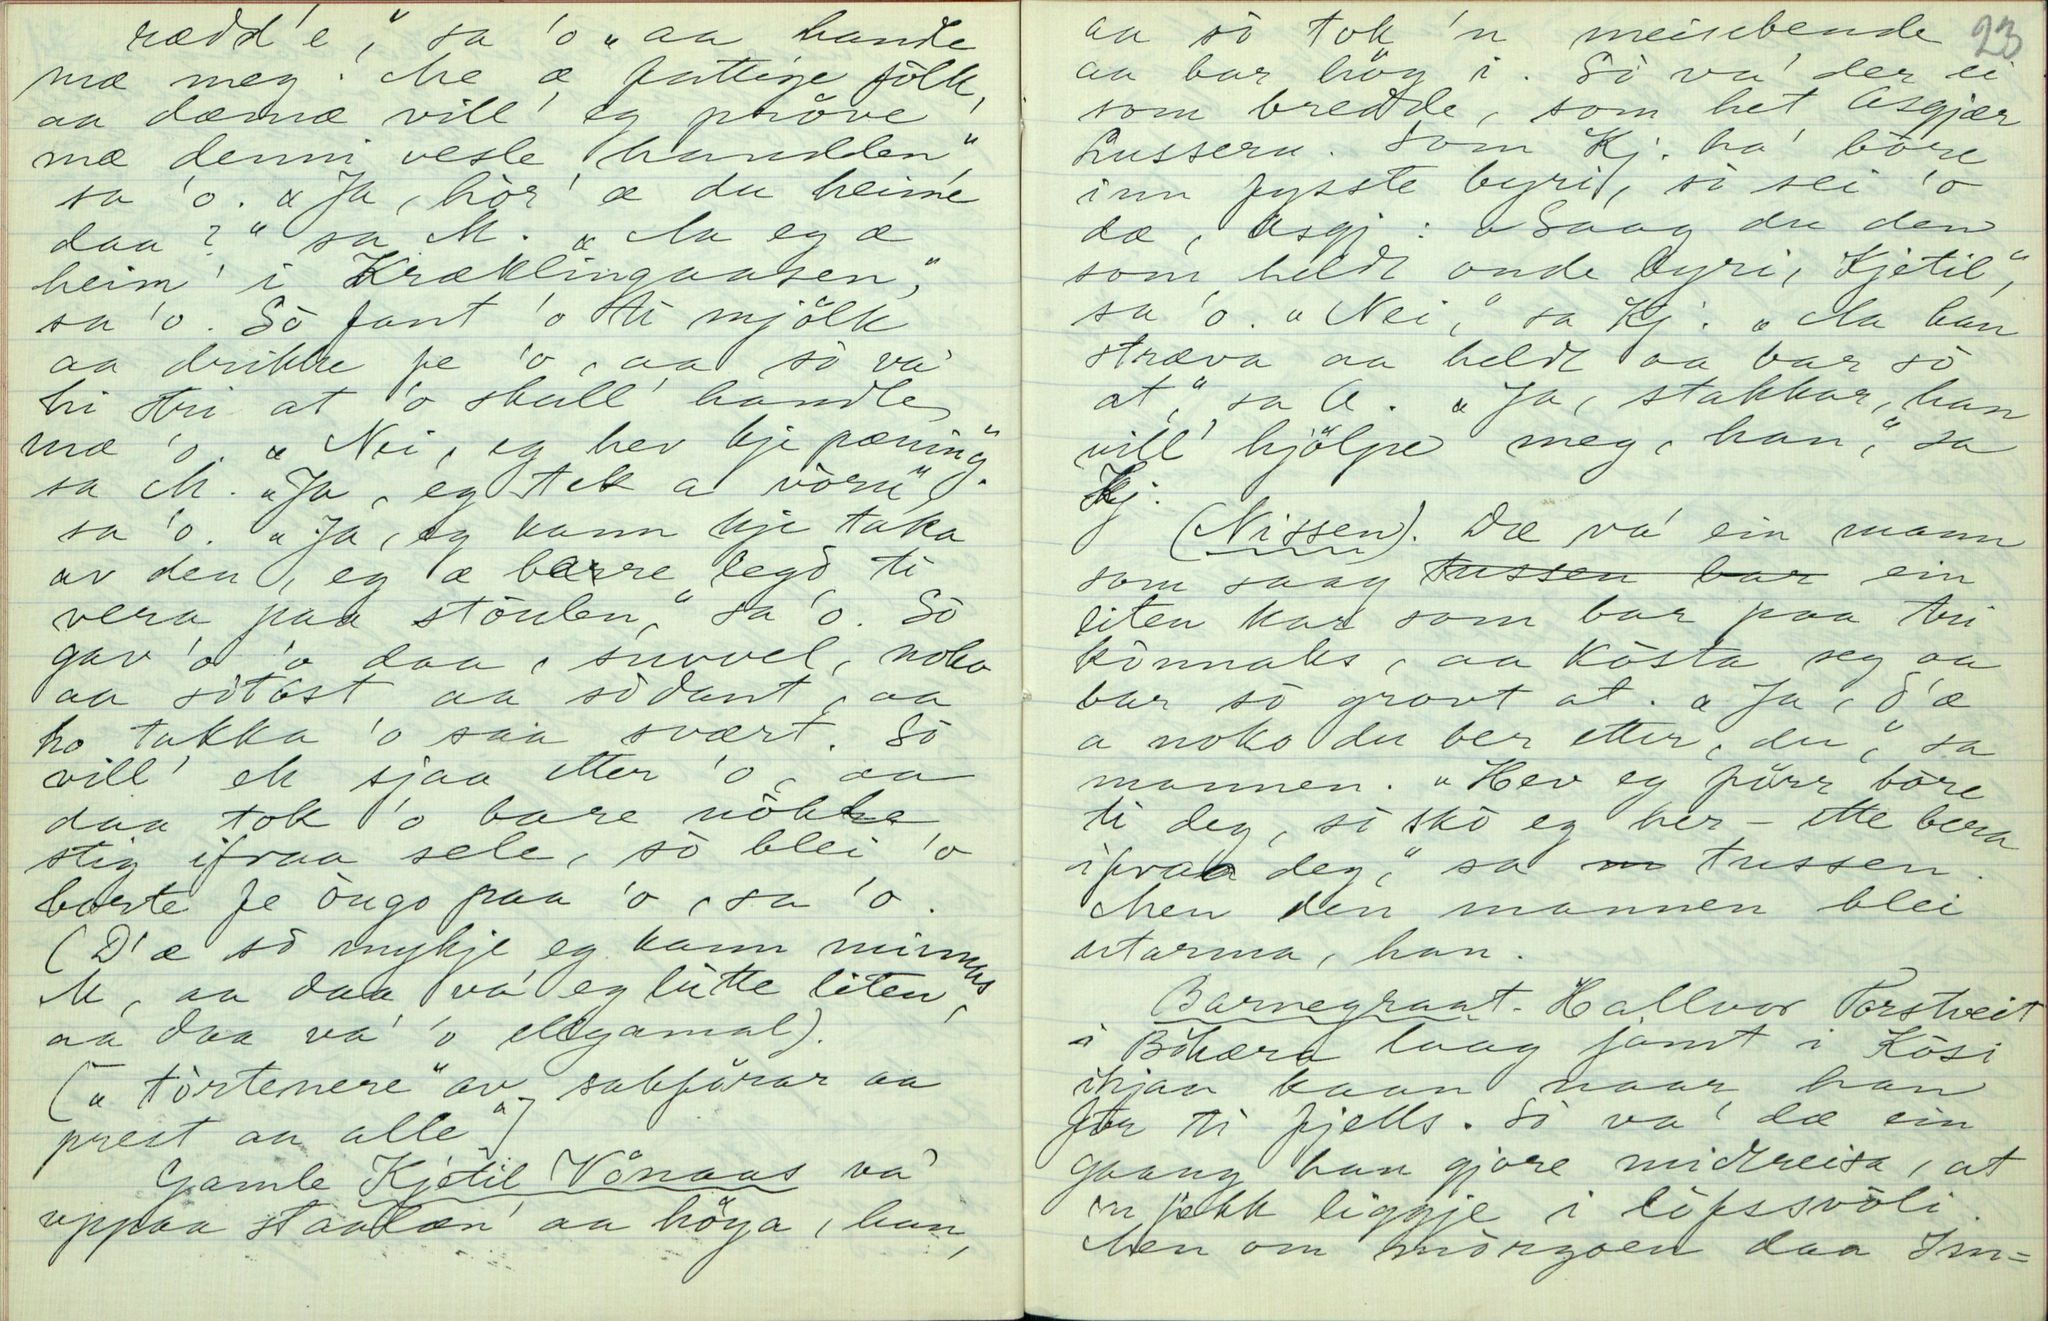 rædd'e," sa 'o „aa handle
mæ meg. Me æ fattige fölk,
aa dæmæ vill' eg pröve
mæ denni vesle handelen",
sa 'o. „Ja, hör' æ du heime
daa?" sa M. „Aa eg æ
heim' i Kræklingaasen,"
sa 'o. So fant 'o ti mjölk
aa drikke fe 'o, aa so va'
hi stri at 'o skull' handle
mæ 'o. „Nei, eg hev kje pæning"
sa M. „Ja, eg tek a vöru",
sa 'o. „Ja, eg kann kje taka
av den, eg æ berre legd ti
vera paa stöulen," sa 'o. So
gav 'o 'o daa, suvvel, noko
aa sötost aa södant, aa
ho takka 'o saa svært. So
vill' ek sjaa etter 'o, aa
daa tok 'o bare nökke
stig ifraa sele, so blei 'o
borte fe öugo paa 'o, sa 'o.
(D'æ so mykje eg kann minnas
M, aa daa va' eg litte liten,
aa daa va' 'o elgamal).
(„törtenere" av sakförar aa
prest aa alle".)
Gamle Kjetil Vönaas va'
uppaa staalæn' aa höya, han,
23
aa so tok 'n meisebende
aa bar höy i. So va' der ei
som bredde, som het Asgjær
Lussera. Som Kj. ha' böre
inn fysste byri, so sei 'o
dæ, Asgj: „Saag du den
som heldt onde byri, Kjetil",
sa 'o. „Nei," sa Kj. „Aa han
stræva aa heldt aa bar so
at," sa A. „Ja, stakkar, han
vill' hjölpe meg, han," sa
Kj.
(Nissen). Dæ va' ein mann
som saag tussen bar ein
liten kar som bar paa tri
könnaks, aa kösta seg aa
bar so grovt at. „Ja, d'æ
a noko du ber etter, du," sa
mannen. „Hev eg förr böre
ti deg, so sko eg her-ette bera
ifraa deg," sa tussen.
Men den mannen blei
utarma, han.
Barnegraat. Hallvor Torstveit
i Bökæra laag jamt i Kösi
ihjaa kaan naar han
for ti fjells. So va' dæ ein
gaang han gjore midtreisa, at
'n fekk liggje i löfssvöli.
Men om mörgoen daa Ion=